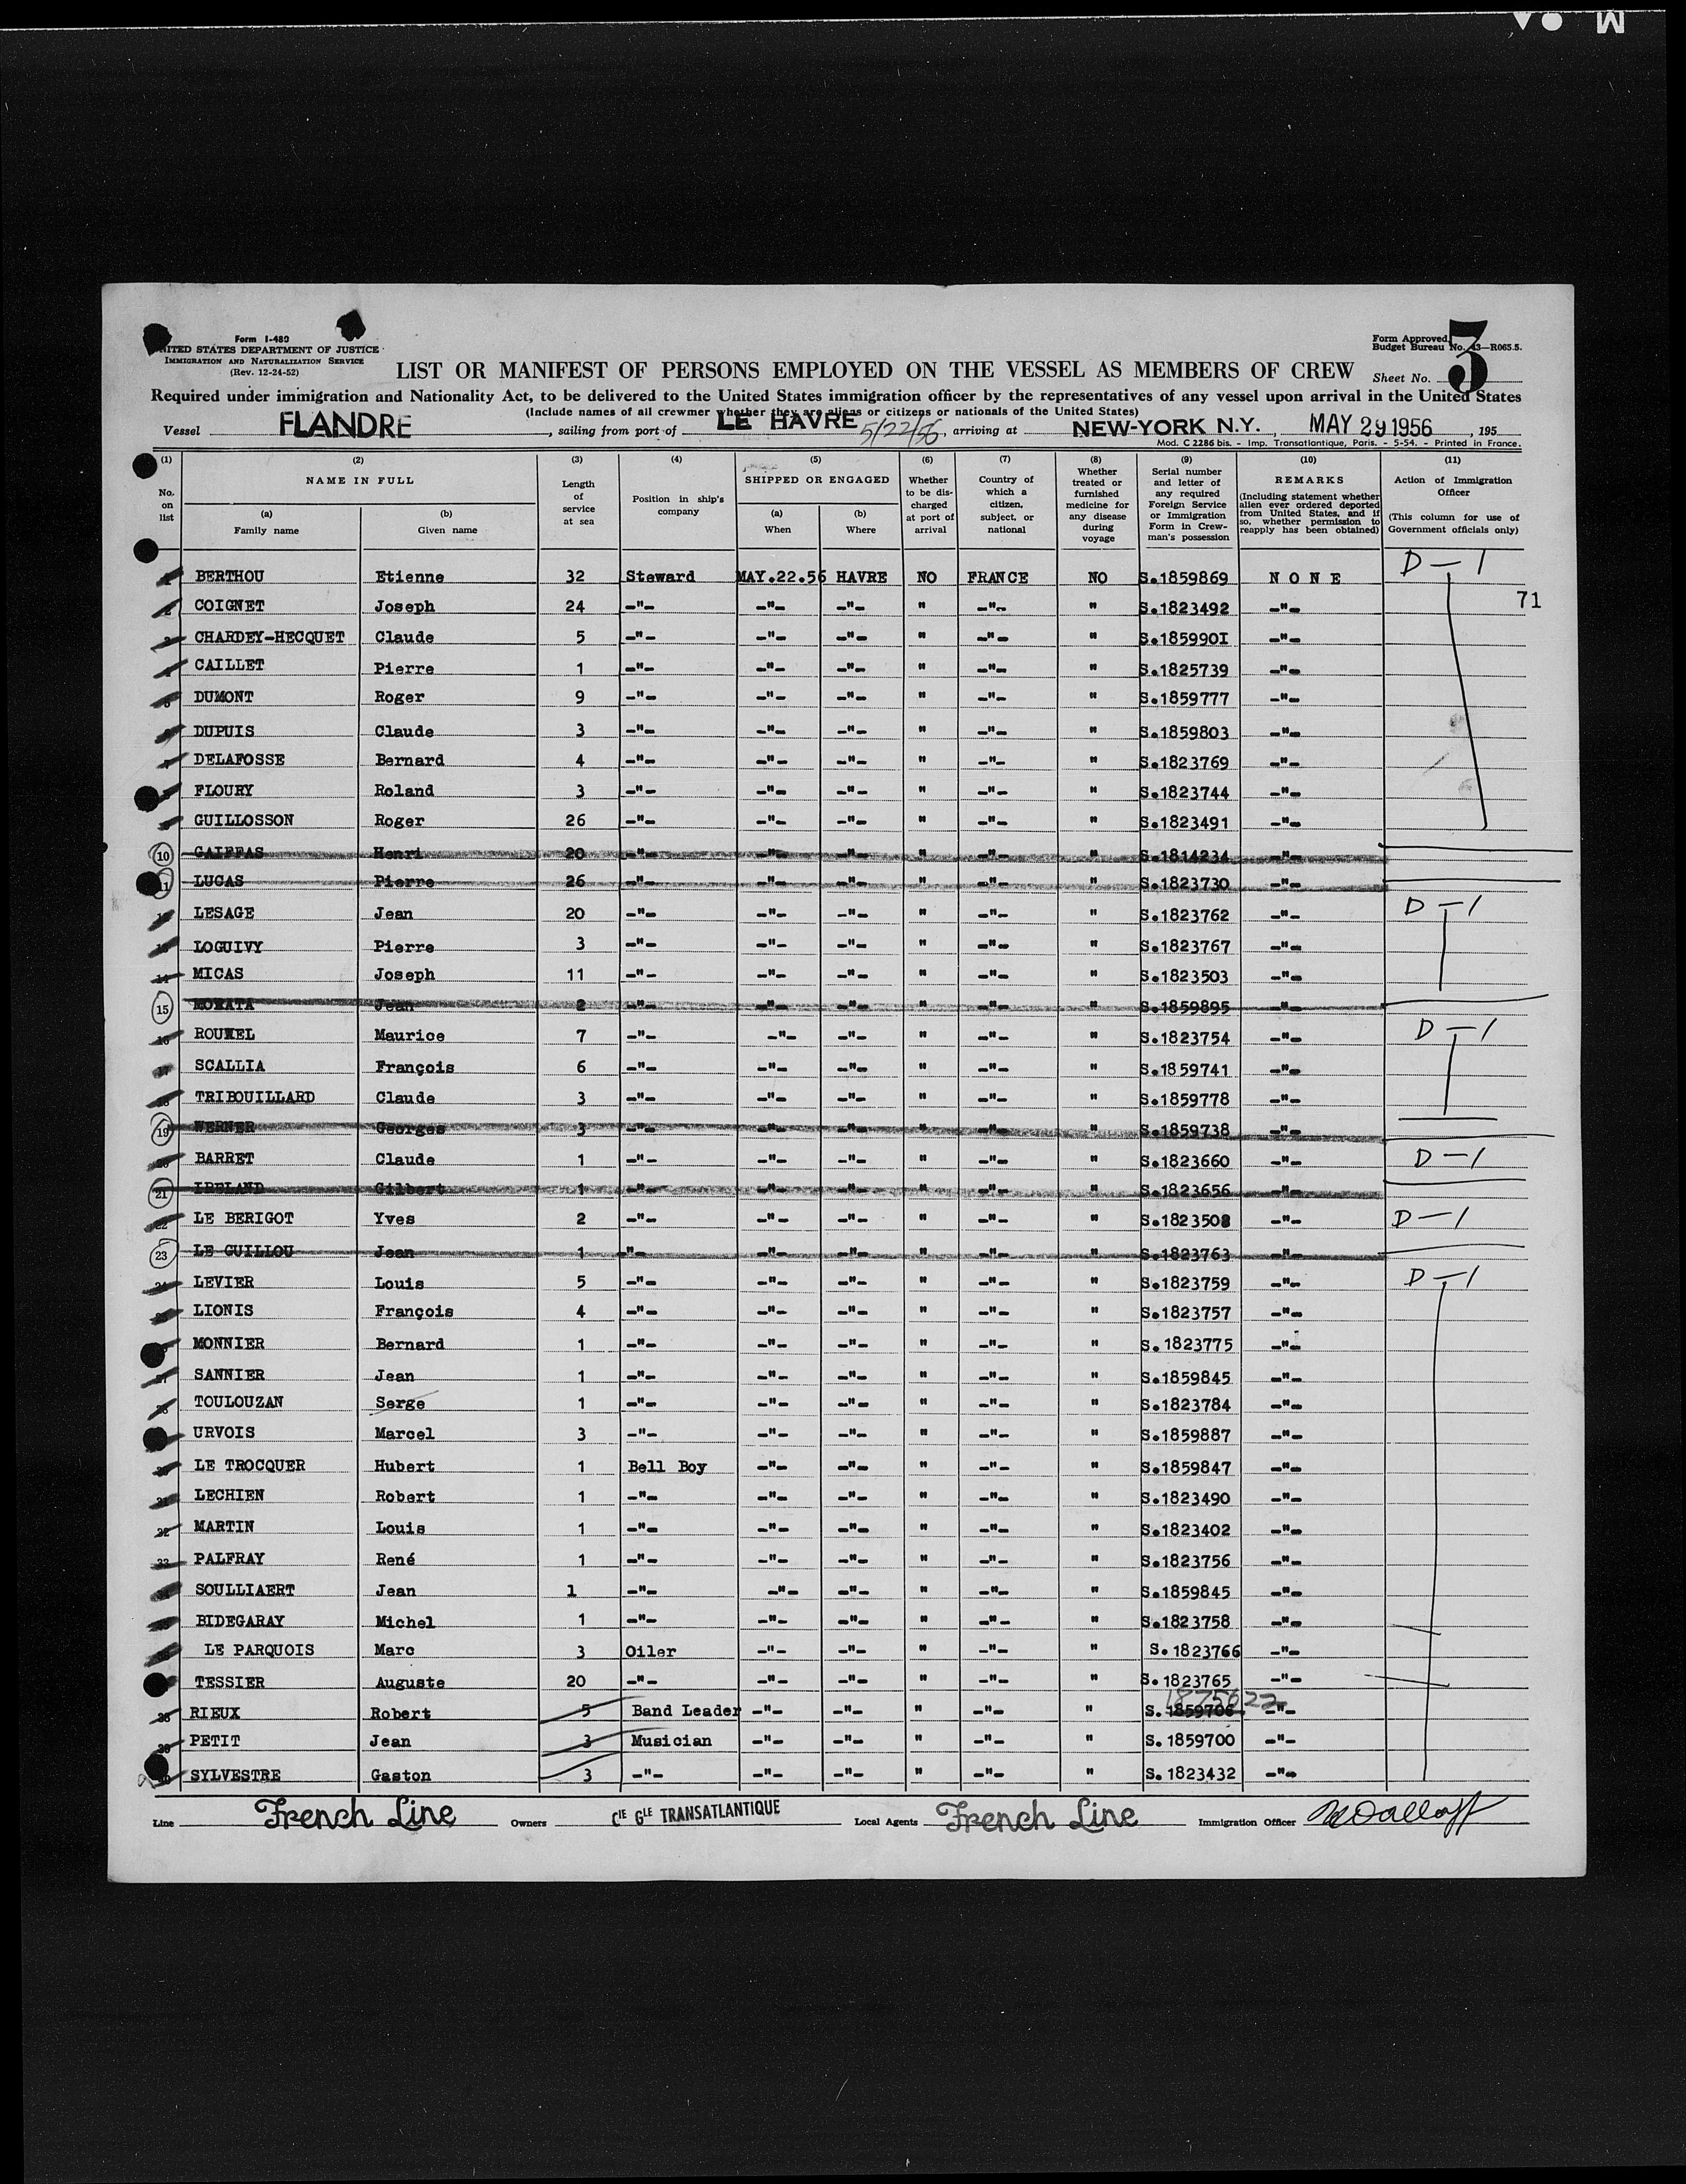 Form I-480
UNITED STATES DEPARTMENT OF JUSTICE
IMMIGRATION AND NATURALIZATION SERVICE
(Rev. 12-24-52)
Form Approved.
Budget Bureau No. 43—R065.5.
LIST OR MANIFEST OF PERSONS EMPLOYED ON THE VESSEL AS MEMBERS OF CREW
Sheet No. 3
Required under immigration and Nationality Act, to be delivered to the United States immigration officer by the representatives of any vessel upon arrival in the United States
(Include names of all crewmer whether they are aliens or citizens or nationals of the United States)
Vessel FLANDRE, sailing from port of LE HAVRE 5/22/56, arriving at NEW-YORK N.Y., MAY 29 1956, 195
Mod. C 2286 bis. - Imp. Transatlantique, Paris. - 5-54. - Printed in France.
(1) (2) (3) (4) (5) (6) (7) (8) (9) (10) (11)
No. on list
NAME IN FULL
(a) Family name
(b) Given name
Length of service at sea
Position in ship's company
SHIPPED OR ENGAGED
(a) When
(b) Where
Whether to be discharged at port of arrival
Country of which a citizen, subject, or national
Whether treated or furnished medicine for any disease during voyage
Serial number and letter of any required Foreign Service or Immigration Form in Crewman's possession
REMARKS
(Including statement whether alien ever ordered deported from United States, and if so, whether permission to reapply has been obtained)
Action of Immigration Officer
(This column for use of Government officials only)
1 BERTHOU Etienne 32 Steward MAY.22.56 HAVRE NO FRANCE NO S.1859869 N O N E D—1
71
2 COIGNET Joseph 24 -"- -"- -"- " -"- " S.1823492 -"-
3 CHARDEY-HECQUET Claude 5 -"- -"- -"- " -"- " S.185990I -"-
4 CAILLET Pierre 1 -"- -"- -"- " -"- " S.1825739 -"-
5 DUMONT Roger 9 -"- -"- -"- " -"- " S.1859777 -"-
6 DUPUIS Claude 3 -"- -"- -"- " -"- " S.1859803 -"-
7 DELAFOSSE Bernard 4 -"- -"- -"- " -"- " S.1823769 -"-
FLOURY Roland 3 -"- -"- -"- " -"- " S.1823744 -"-
9 GUILLOSSON Roger 26 -"- -"- -"- " -"- " S.1823491 -"-
10 GAIFFAS Henri 20 -"- -"- -"- " -"- " S.1814234 -"-
11 LUCAS Pierre 26 -"- -"- -"- " -"- " S.1823730 -"-
12 LESAGE Jean 20 -"- -"- -"- " -"- " S.1823762 -"- D—1
13 LOGUIVY Pierre 3 -"- -"- -"- " -"- " S.1823767 -"-
14 MICAS Joseph 11 -"- -"- -"- " -"- " S.1823503 -"-
15 MORATA Jean 2 -"- -"- -"- " -"- " S.1859895 -"-
16 ROUXEL Maurice 7 -"- -"- -"- " -"- " S.1823754 -"- D—1
17 SCALLIA François 6 -"- -"- -"- " -"- " S.1859741 -"-
18 TRIBOUILLARD Claude 3 -"- -"- -"- " -"- " S.1859778 -"-
19 WERNER Georges 3 -"- -"- -"- " -"- " S.1859738 -"-
20 BARRET Claude 1 -"- -"- -"- " -"- " S.1823660 -"- D—1
21 IBELAND Gilbert 1 -"- -"- -"- " -"- " S.1823656 -"-
22 LE BERIGOT Yves 2 -"- -"- -"- " -"- " S.1823508 -"- D—1
23 LE GUILLOU Jean 1 "- -"- -"- " -"- " S.1823763 -"-
24 LEVIER Louis 5 -"- -"- -"- " -"- " S.1823759 -"- D—1
25 LIONIS François 4 -"- -"- -"- " -"- " S.1823757 -"-
MONNIER Bernard 1 -"- -"- -"- " -"- " S.1823775 -"-
27 SANNIER Jean 1 -"- -"- -"- " -"- " S.1859845 -"-
28 TOULOUZAN Serge 1 -"- -"- -"- " -"- " S.1823784 -"-
URVOIS Marcel 3 -"- -"- -"- " -"- " S.1859887 -"-
30 LE TROCQUER Hubert 1 Bell Boy -"- -"- " -"- " S.1859847 -"-
31 LECHIEN Robert 1 -"- -"- -"- " -"- " S.1823490 -"-
32 MARTIN Louis 1 -"- -"- -"- " -"- " S.1823402 -"-
33 PALFRAY René 1 -"- -"- -"- " -"- " S.1823756 -"-
34 SOULLIAERT Jean 1 -"- -"- -"- " -"- " S.1859845 -"-
35 BIDEGARAY Michel 1 -"- -"- -"- " -"- " S.1823758 -"-
LE PARQUOIS Marc 3 Oiler -"- -"- " -"- " S.1823766 -"-
TESSIER Auguste 20 -"- -"- -"- " -"- " S.1823765 -"-
1875622
38 RIEUX Robert 5 Band Leader -"- -"- " -"- " S.1859706 -"-
39 PETIT Jean 3 Musician -"- -"- " -"- " S.1859700 -"-
SYLVESTRE Gaston 3 -"- -"- -"- " -"- " S.1823432 -"-
Line French Line Owners Cie Gle TRANSATLANTIQUE Local Agents French Line Immigration Officer